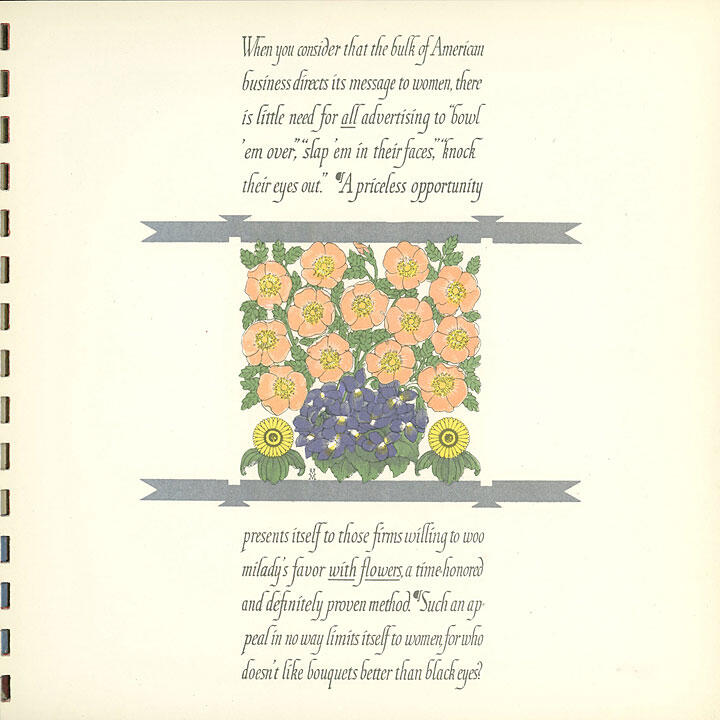 When you consider that the bulk of American
business directs its message to women, there
is little need for all advertising to "bowl
'em over," "slap 'em in their faces," "knock
their eyes out." ¶A priceless opportunity
presents itself to those firms willing to woo
milady's favor with flowers, a time-honored
and definitely proven method. ¶Such an ap-
peal in no way limits itself to women, for who
doesn't like bouquets better than black eyes?